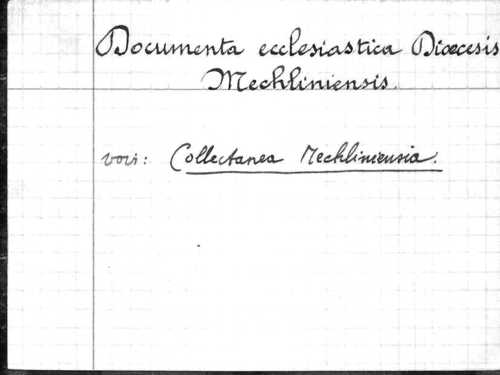 Documenta ecclesiastica Diœcesis
Mechliniensis.
voir: Collectanea Mechliniensia.